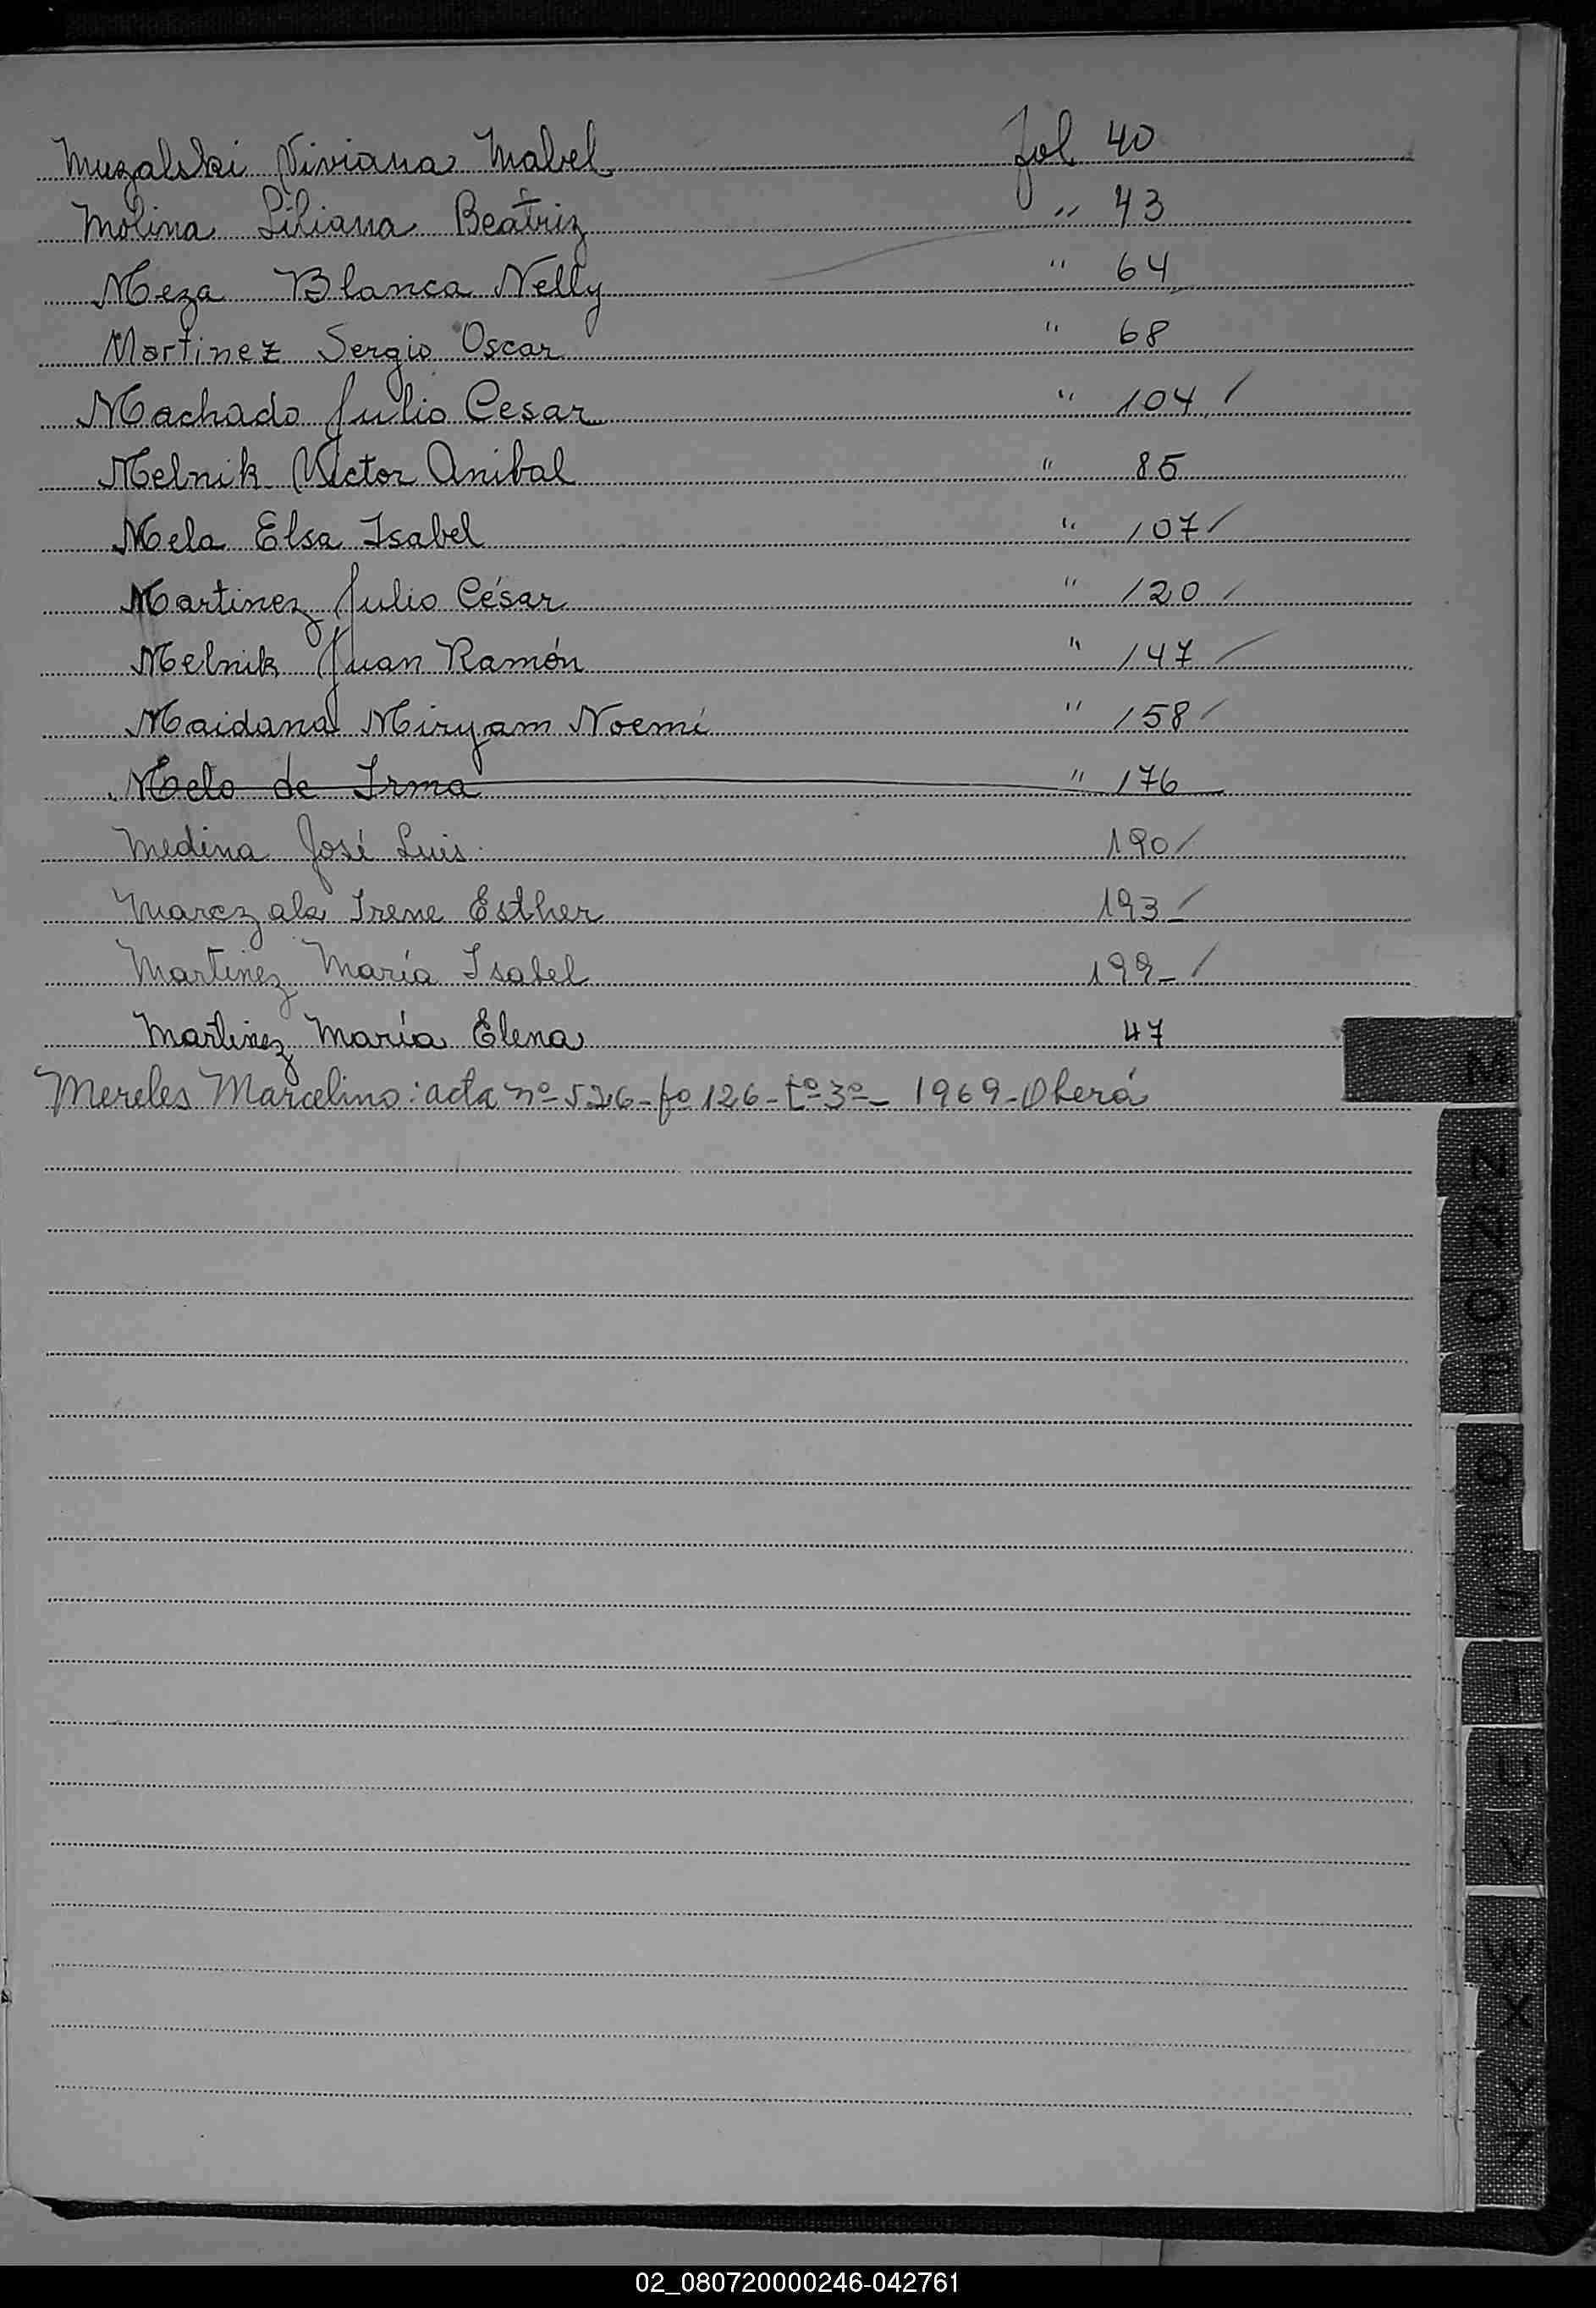 Muzalski Viviana Mabel fol 40
Molina Liliana Beatriz " 43
Meza Blanca Nelly " 64
Martinez Sergio Oscar " 68
Machado Julio Cesar " 104 /
Melnik Victor Anibal " 85
Mela Elsa Isabel " 107 /
Martinez Julio César " 120 /
Melnik Juan Ramón " 147 /
Maidana Miryam Noemí " 158 /
Melo de Irma " 176
Medina José Luis 190 /
Irene Esther 193 /
Martinez María Isabel 199 - /
Martinez María Elena 47
Mereles Marcelino: acta nº 526 - fo 126 - tº 3º - 1969 - Oberá
M
N
Ñ
O
P
Q
R
S
T
U
V
W
X
Y
Z
02_080720000246-042761